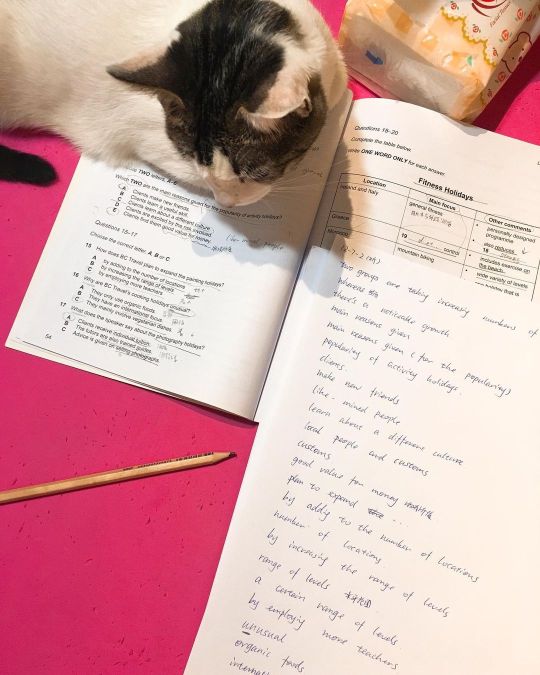 TWO letters, A-E
Which TWO are the main reasons given for the popularity of activity holidays?
A Clients make new friends.
B Clients learn a useful skill.
C Clients learn about a different culture.
D Clients are excited by the risk involved.
E Clients find them good value for money.
like-mined people
Questions 15-17
Choose the correct letter, A, B or C.
15 How does BC Travel plan to expand the painting holidays?
A by adding to the number of locations
B by increasing the range of levels
C by employing more teachers
16 Why are BC Travel's cooking holidays unusual?
A They only use organic foods.
B They have an international focus.
C They mainly involve vegetarian dishes.
17 What does the speaker say about the photography holidays?
A Clients receive individual tuition.
B The tutors are also trained guides.
C Advice is given on selling photographs.
54
Questions 18-20
Complete the table below.
Write ONE WORD ONLY for each answer.
Fitness Holidays
Location
Main focus
Other comments
Ireland and Italy
general fitness
personally designed programme
also
18
Greece
19 diet control
includes exercise on the beach
Morocco
mountain biking
wide variety of levels
holiday that is
12-7-2
two groups are today increasy numbers of
whereas
there's a noticable growth
main reasons given
main reasons given (for the popularity)
popularity of activity holidays.
clients.
make new friends
like-mined people
learn about a different culture
local people and customs
customs
good value for money
plan to expand
by adding to the number of locations
number of locations.
by increasing the range of levels
range of levels
a certain range of levels
by employing more teachers
unusual
organic foods